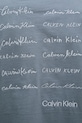 Calvin Klein
Calvin Klein
Calvin Klein
CALVIN KLEIN
Calvin Klein
Calvin Klein
CALVIN KLEIN
Calvin Klein
Calvin Klein
Calvin Klein